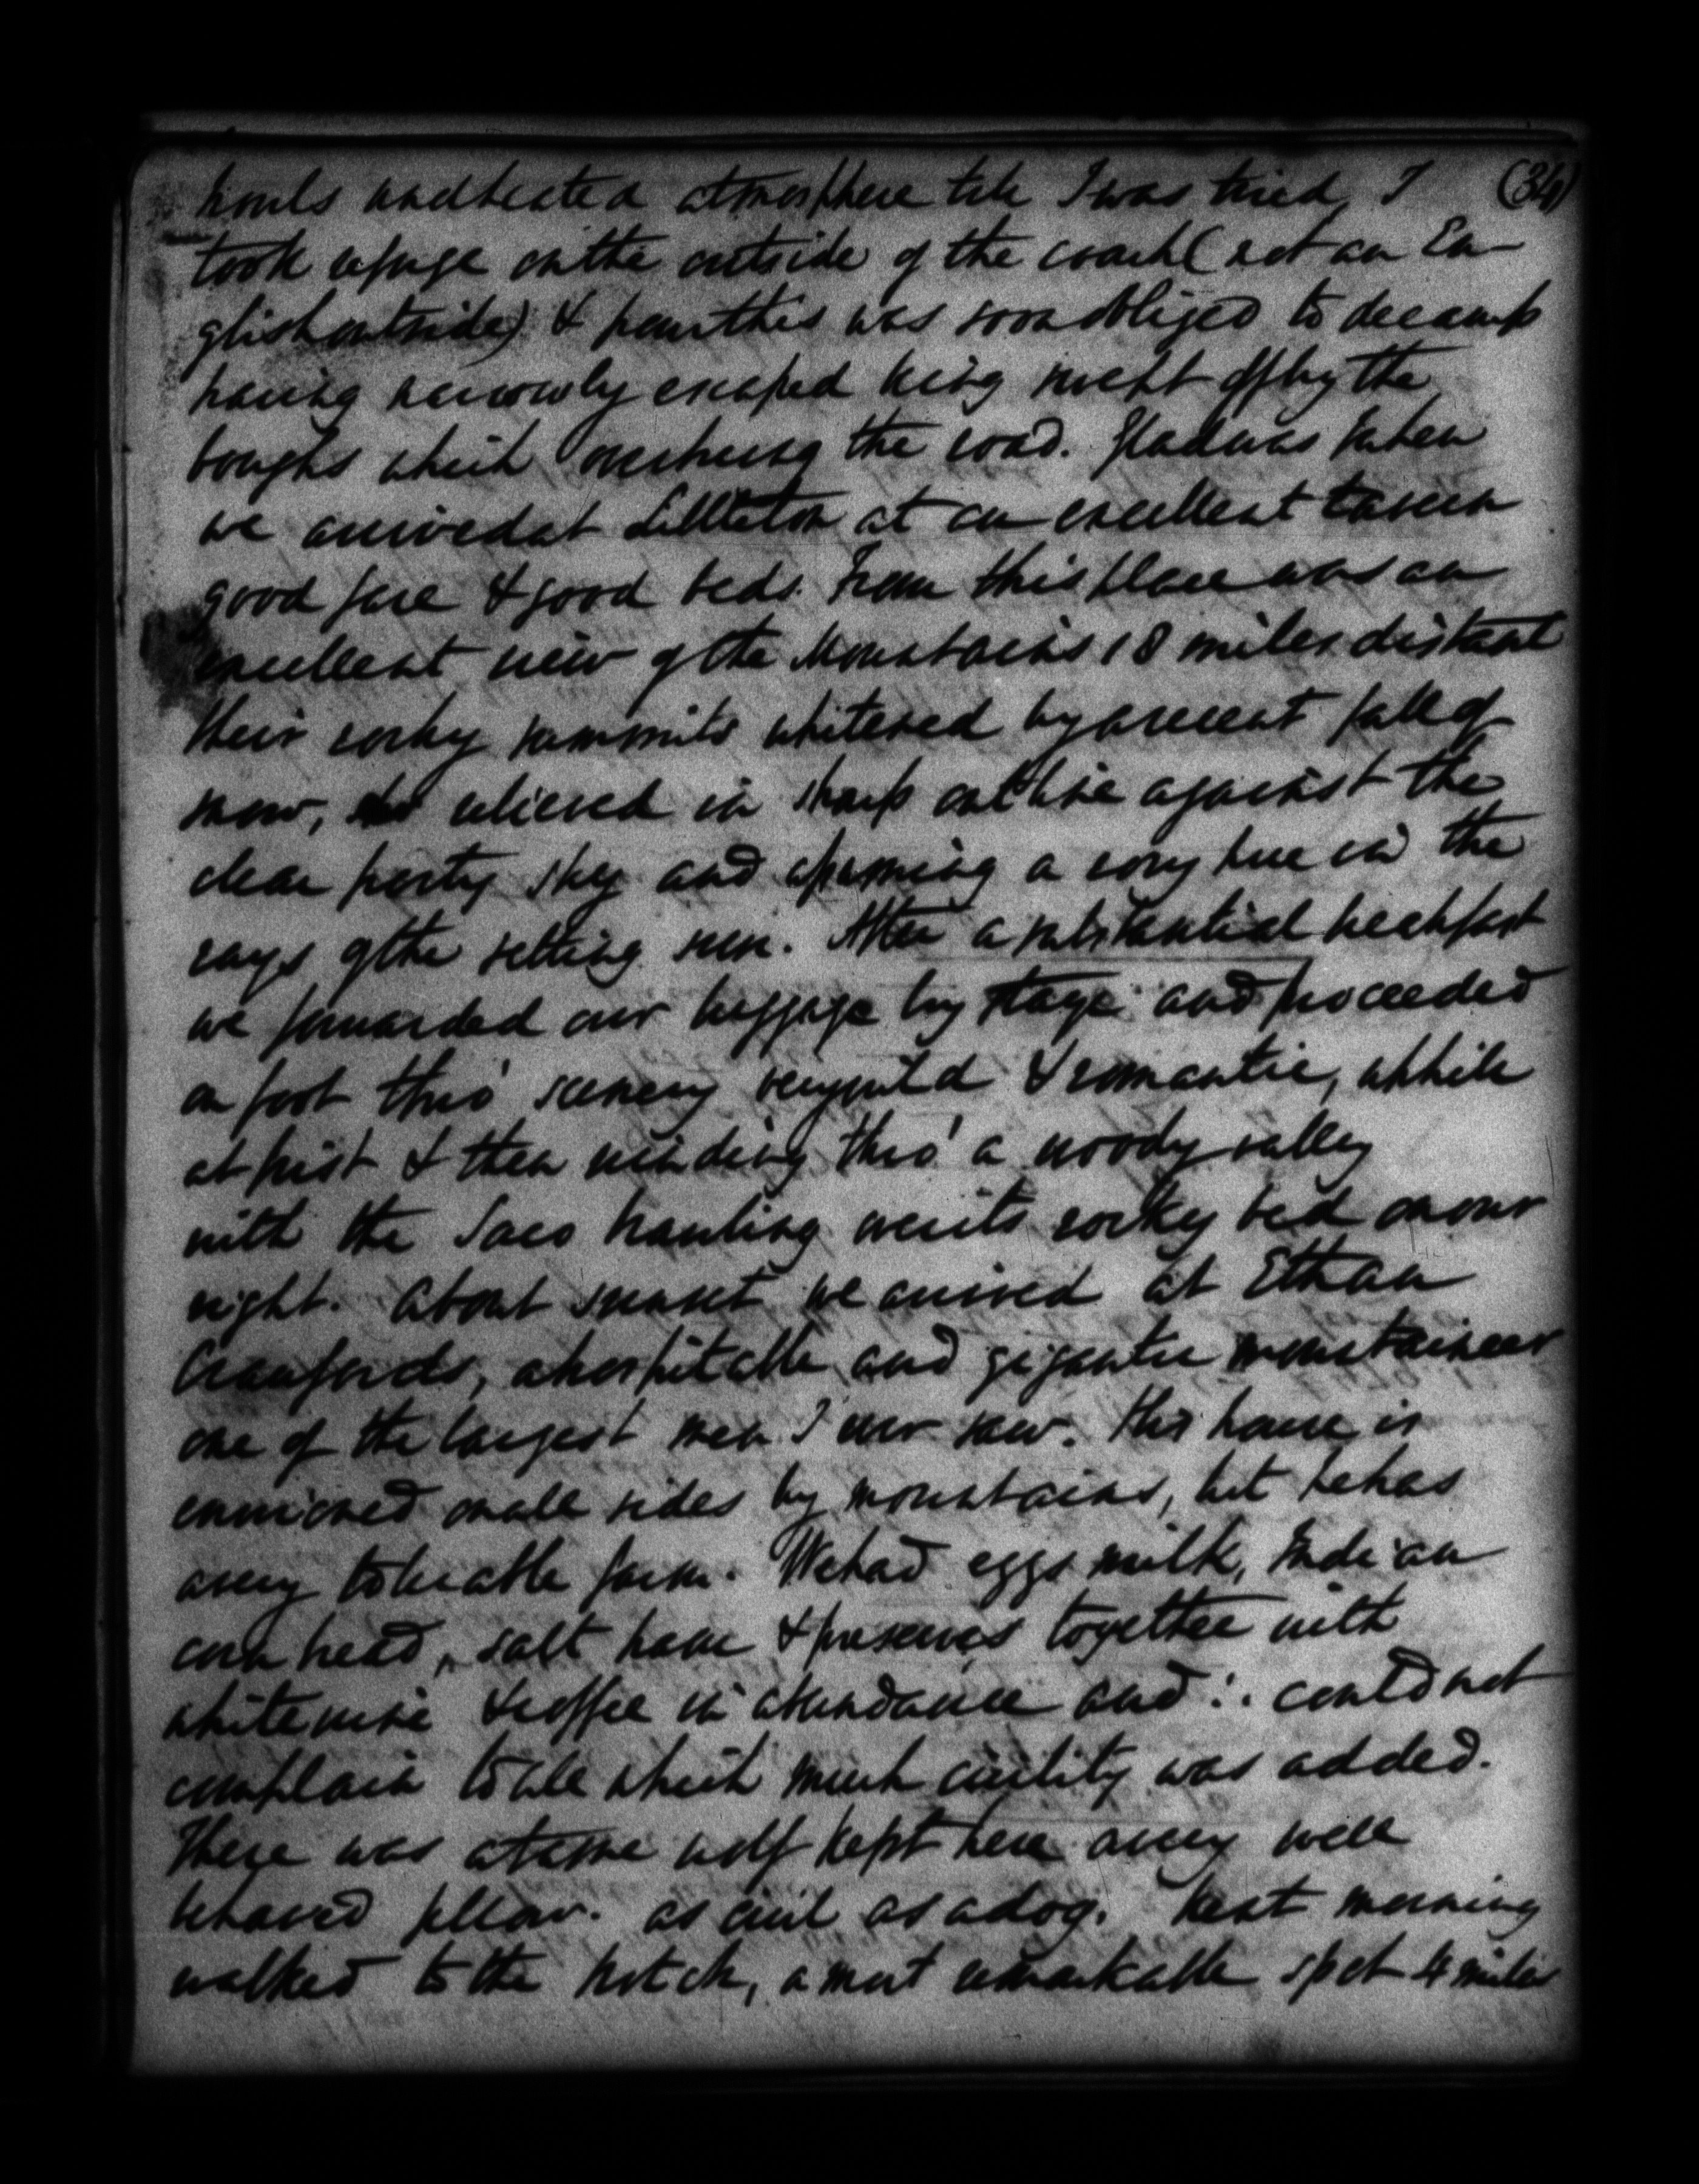 howls and heated atmosphere till I was tired, I (34)
took refuge on the outside of the coach (not an En-
glish outside) & from this was soon obliged to decamp
having narrowly escaped being swept off by the
boughs which overhung the road. Glad was I when
we arrived at Littleton at an excellent tavern
good fare & good beds. From this place was an
excellent view of the Mountains 18 miles distant
their rocky summits whitened by a recent fall of
snow, relieved in sharp outline against the
clear frosty sky and assuming a rosy hue in the
rays of the setting sun. After a substantial breakfast
we forwarded our luggage by stage and proceeded
on foot thro' scenery very wild & romantic, while
at first & then winding thro' a woody valley
with the Saco brawling over its rocky bed on our
right. About sunset we arrived at Ethan
Crawfords, a hospitable and gigantic mountaineer
one of the largest men I ever saw. His house is
environed on all sides by mountains, but he has
a very tolerable farm. We had eggs milk, Indian
corn bread, salt ham & preserves together with
white wine & coffee in abundance and ∴ could not
complain to all which much civility was added.
There was a tame wolf kept here a very well
behaved fellow. as civil as a dog. Next morning
walked to the Notch, a most remarkable spot 4 miles